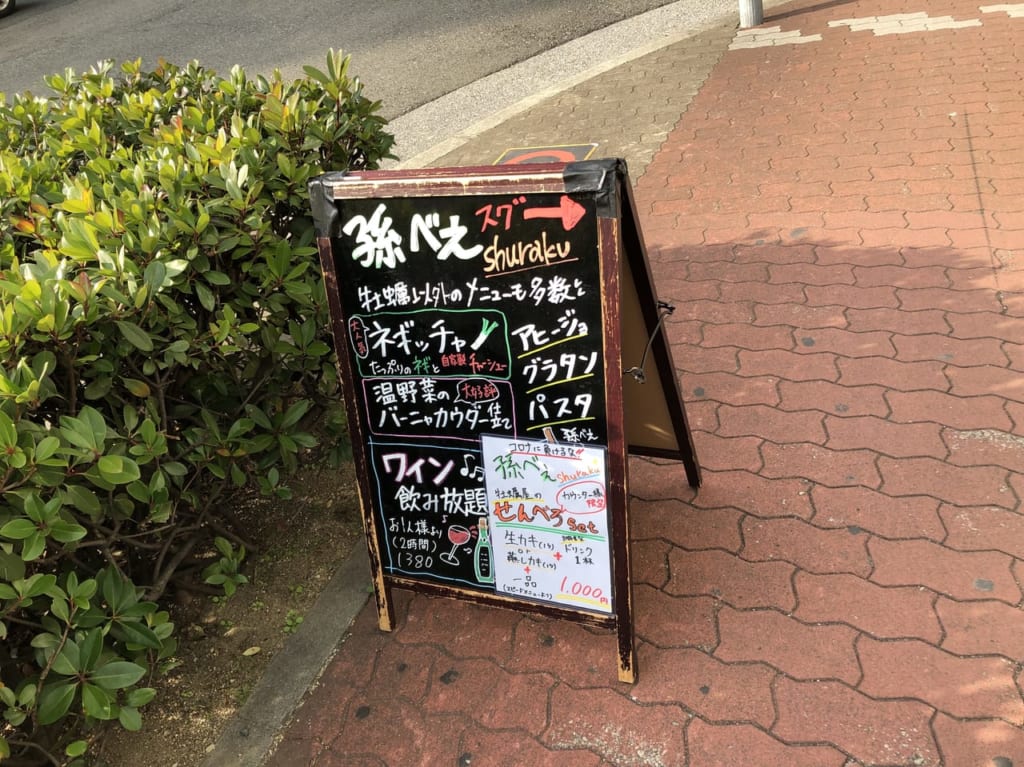 孫べえ スグ→
shuraku
牡蠣以外のメニューも多数と
大人気 ネギッチャン
たっぷりのネギと自家製チャーシュー
温野菜の 大好評
バーニャカウダー仕立て
アヒージョ
グラタン
パスタ
孫べえ
ワイン
飲み放題
お1人様より
(2時間)
1380
コロナに負けるな!!
孫べえ shuraku
牡蠣屋の カウンター様 限定
せんべろ set
生カキ(1コ)
or
蒸しカキ(1コ)
+
ドリンク
1杯
+
一品
(スピードメニューより)
1.000円